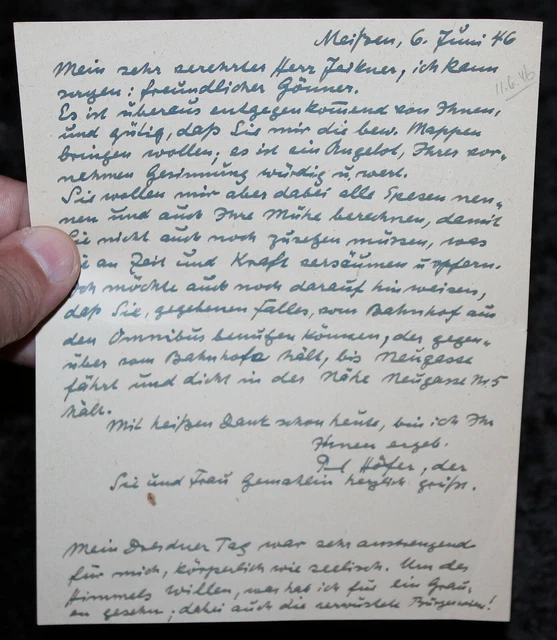 Meißen, 6. Juni 46
11.6.46
Mein sehr verehrter Herr Zeikner, ich kann
sagen: freundlicher Gönner.
Es ist überaus entgegenkommend von Ihnen,
und gütig, daß Sie mir die bew. Mappen
bringen wollen; es ist ein Angebot, Ihrer vor-
nehmen Gesinnung würdig u. wert.
Sie wollen mir aber dabei alle Spesen nen-
nen und auch Ihre Mühe berechnen, damit
Sie nicht auch noch zusetzen müssen, was
an Zeit und Kraft versäumen u opfern.
ch möchte auch noch darauf hinweisen,
daß Sie, gegebenen Falles, vom Bahnhof aus
den Omnibus benutzen können, der gegen-
über vom Bahnhofe hält, bis Neugasse
fährt und dicht in der Nähe Neugasse Nr. 5
hält.
Mit heißen Dank schon heute, bin ich Ihr
Ihnen ergeb.
Höfer, der
Sie und Frau Gemahlin herzlich grüßt.
Mein Dresdner Tag war sehr anstrengend
für mich, körperlich wie seelisch. Um des
Himmels Willen, was hab ich für ein Grau-
en gesehn; dabei auch die verwüstete Bürgerwiese!